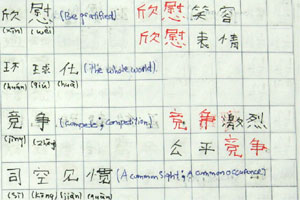 欣 慰 (Be gratified) 欣 慰 笑 容
(xīn) (wèi) 欣 慰 情
环 球 (The whole world)
(huán) (qiú)
竞 争 (Compete; competition) 竞 争 激 烈
(jìng) (zhēng) 公 平 竞 争
司 空 见 惯 (A common sight; a common occurrence)
(sī) (kōng) (jiàn) (guàn)